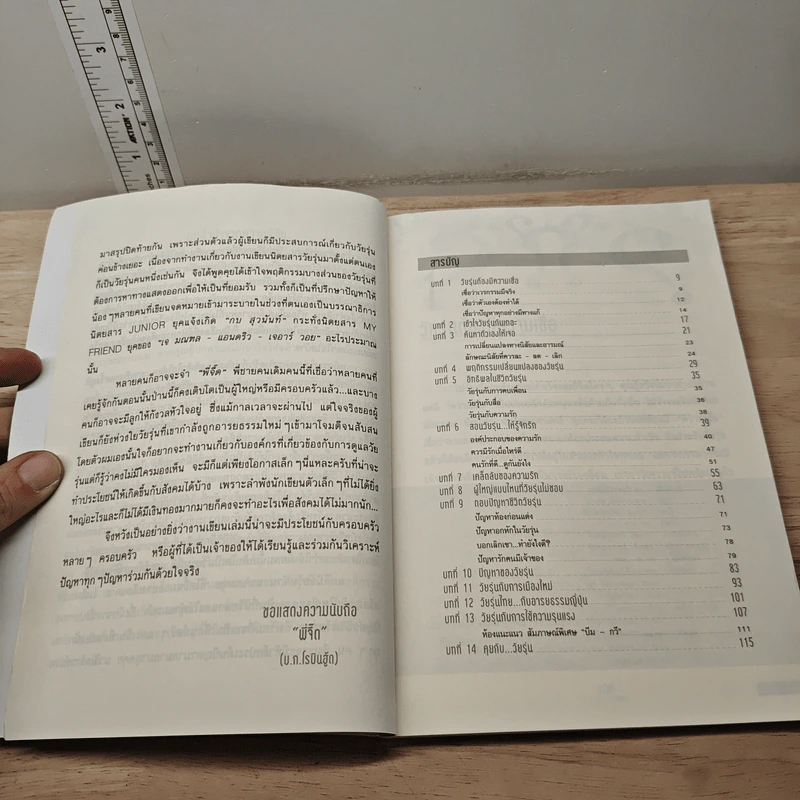 มาสรุปปิดท้ายกัน เพราะส่วนตัวแล้วผู้เขียนก็มีประสบการณ์เกี่ยวกับวัยรุ่น
ค่อนข้างเยอะ เนื่องจากทำงานเกี่ยวกับงานเขียนนิตยสารวัยรุ่นมาตั้งแต่ตนเอง
ก็เป็นวัยรุ่นคนหนึ่งเช่นกัน จึงได้พูดคุยได้เข้าใจพฤติกรรมบางส่วนของวัยรุ่นที่
ต้องการหาทางแสดงออกเพื่อให้เป็นที่ยอมรับ รวมทั้งก็เป็นที่ปรึกษาปัญหาให้
น้องๆหลายคนที่เขียนจดหมายเข้ามาระบายในช่วงที่ตนเองเป็นบรรณาธิการ
นิตยสาร JUNIOR ยุคแจ้งเกิด "กบ สุวนันท์" กระทั่งนิตยสาร MY
FRIEND ยุคของ "เจ มณฑล - แอนดริว - เจอาร์ วอย" อะไรประมาณ
นั้น
หลายคนก็อาจจะจำ "พี่จี๊ด" พี่ชายคนเดิมคนนี้ที่เชื่อว่าหลายคนที่
เคยรู้จักกันตอนนั้นป่านนี้ก็คงเติบโตเป็นผู้ใหญ่หรือมีครอบครัวแล้ว...และบาง
คนก็อาจจะมีลูกให้กังวลหัวใจอยู่ ซึ่งแม้กาลเวลาจะผ่านไป แต่ใจจริงของผู้
เขียนก็ยังห่วงใยวัยรุ่นที่เขากำลังถูกอารยธรรมใหม่ๆเข้ามาโจมตีจนสับสน
โดยตัวผมเองนั้นใจก็อยากจะทำงานเกี่ยวกับองค์กรที่เกี่ยวข้องกับการดูแลวัย
รุ่นแต่ก็รู้ว่าคงไม่มีใครมองเห็น จะมีก็แต่เพียงโอกาสเล็กๆนี่แหละครับที่น่าจะ
ทำประโยชน์ให้เกิดขึ้นกับสังคมได้บ้าง เพราะลำพังนักเขียนตัวเล็กๆที่ไม่ได้ยิ่ง
ใหญ่อะไรและก็ไม่ได้มีเงินทองมากมายก็คงจะทำอะไรเพื่อสังคมได้ไม่มากนัก...
จึงหวังเป็นอย่างยิ่งว่างานเขียนเล่มนี้น่าจะมีประโยชน์กับครอบครัว
หลายๆ ครอบครัว หรือผู้ที่ได้เป็นเจ้าของให้ได้เรียนรู้และร่วมกันวิเคราะห์
ปัญหาทุกๆปัญหาร่วมกันด้วยใจจริง
ขอแสดงความนับถือ
"พี่จี๊ด"
(บ.ก.โรบินฮู้ด)
สารบัญ
บทที่ 1 วัยรุ่นต้องมีความเชื่อ 9
เชื่อว่าเวรกรรมมีจริง 9
เชื่อว่าตัวเองต้องทำได้ 12
เชื่อว่าปัญหาทุกอย่างมีทางแก้ 14
บทที่ 2 เข้าใจวัยรุ่นกันเถอะ 17
บทที่ 3 ค้นหาตัวเองให้เจอ 21
การเปลี่ยนแปลงทางนิสัยและอารมณ์ 23
ลักษณะนิสัยที่ควรละ - ลด - เลิก 24
บทที่ 4 พฤติกรรมเปลี่ยนแปลงของวัยรุ่น 29
บทที่ 5 อิทธิพลในชีวิตวัยรุ่น 35
วัยรุ่นกับการคบเพื่อน 35
วัยรุ่นกับสื่อ 36
วัยรุ่นกับความรัก 38
บทที่ 6 สอนวัยรุ่น...ให้รู้จักรัก 39
องค์ประกอบของความรัก 40
ควรมีรักเมื่อไหร่ดี 47
คนรักที่ดี...ดูกันยังไง 51
บทที่ 7 เคล็ดลับของความรัก 55
บทที่ 8 ผู้ใหญ่แบบไหนที่วัยรุ่นไม่ชอบ 63
บทที่ 9 ตอบปัญหาชีวิตวัยรุ่น 71
ปัญหาท้องก่อนแต่ง 71
ปัญหาอกหักในวัยรุ่น 73
บอกเลิกเขา...ทำยังไงดี? 78
ปัญหารักคนมีเจ้าของ 79
บทที่ 10 ปัญหาของวัยรุ่น 83
บทที่ 11 วัยรุ่นกับการเมืองไหม่ 93
บทที่ 12 วัยรุ่นไทย...กับอารยธรรมญี่ปุ่น 101
บทที่ 13 วัยรุ่นกับการใช้ความรุนแรง 107
ห้องแนะแนว สัมภาษณ์พิเศษ "บีม - กวี" 111
บทที่ 14 คุยกับ...วัยรุ่น 115
3
2
1
9
8
7
6
5
4
3
2
1